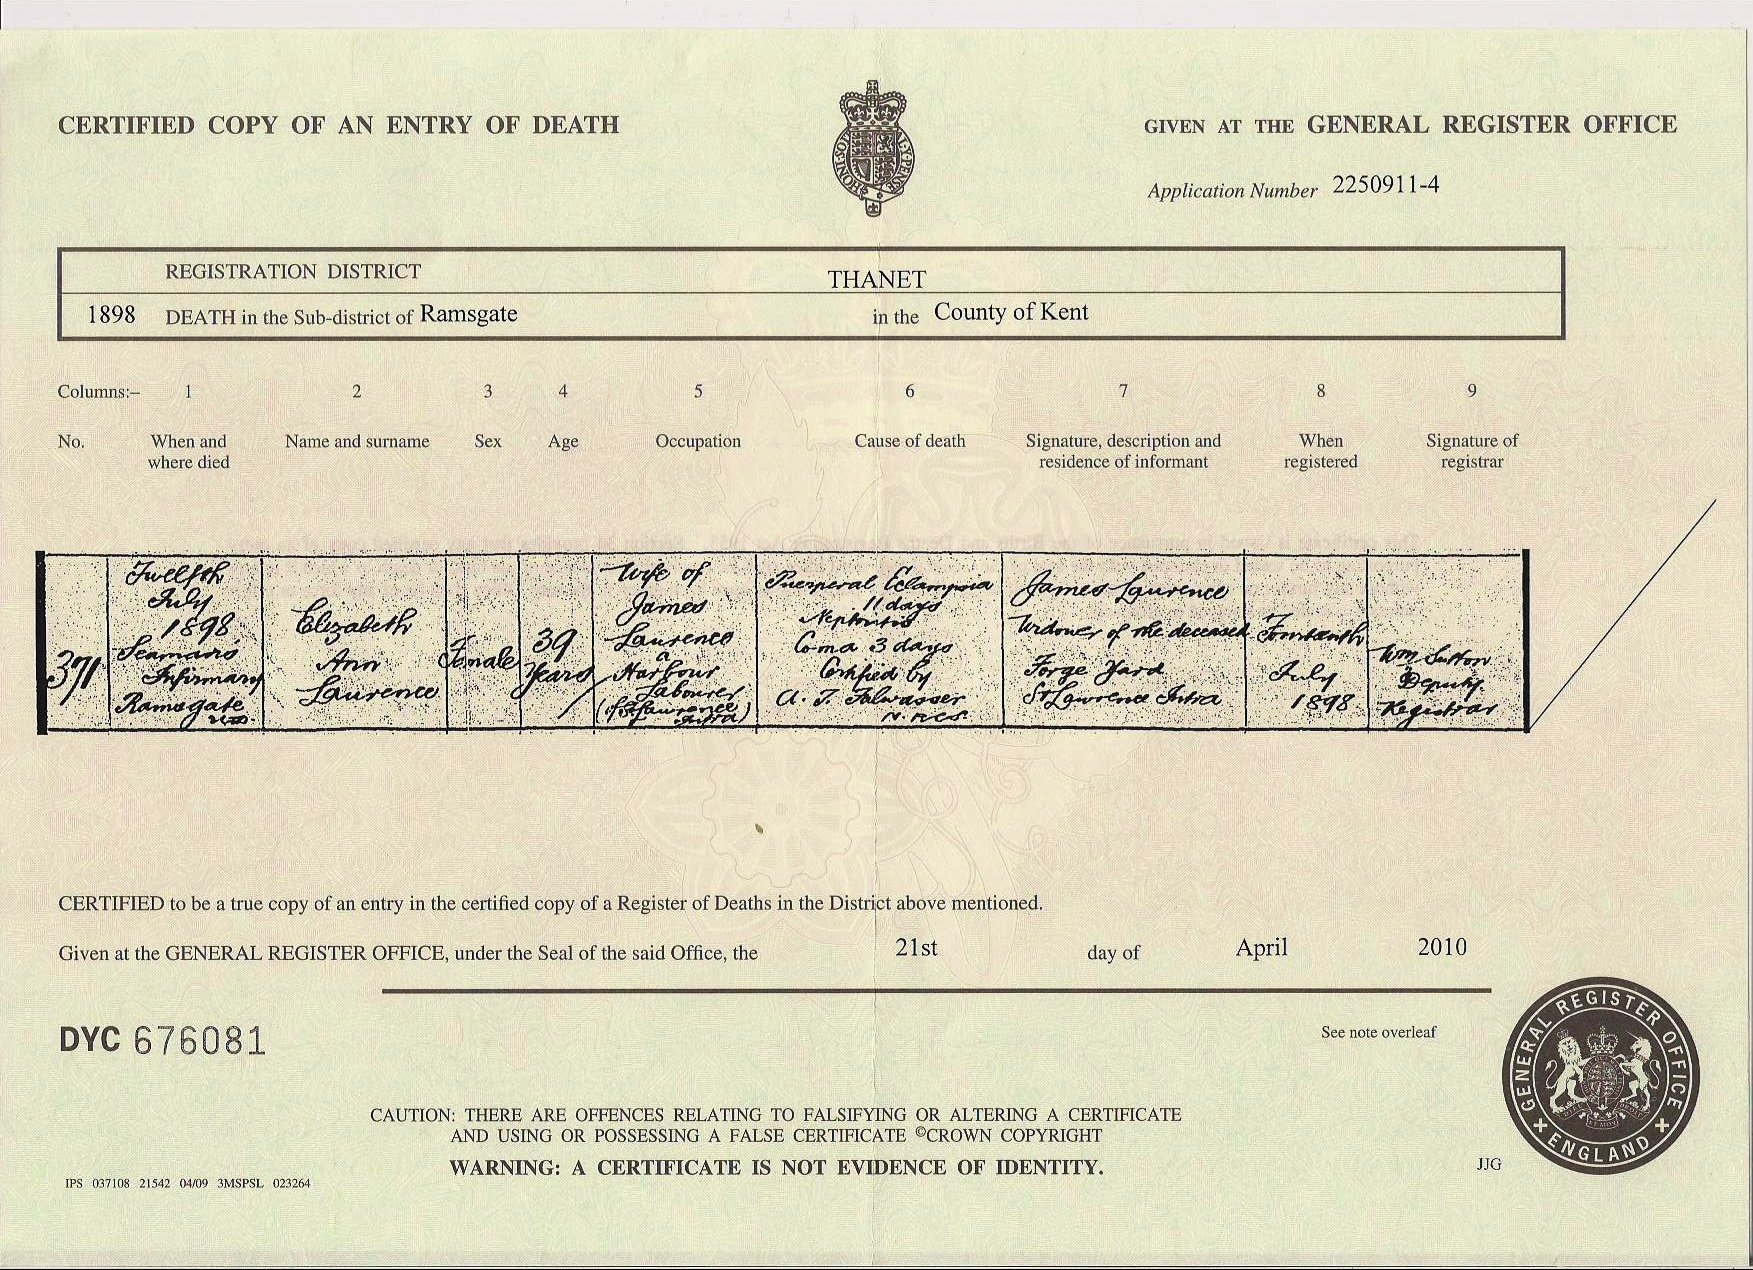 CERTIFIED COPY OF AN ENTRY OF DEATH
GIVEN AT THE GENERAL REGISTER OFFICE
Application Number 2250911-4
REGISTRATION DISTRICT THANET
1898 DEATH in the Sub-district of Ramsgate in the County of Kent
Columns:– 1 2 3 4 5 6 7 8 9
No.
When and
where died
Name and surname
Sex
Age
Occupation
Cause of death
Signature, description and
residence of informant
When
registered
Signature of
registrar
371
Twelfth
July
1898
Seamans
Infirmary
Ramsgate
Elizabeth
Ann
Laurence
Female
39
Years
Wife of
James
Laurence
a
Harbour
Labourer
(of St Lawrence
Intra)
Puerperal Eclampsia
11 days
Nephritis
Coma 3 days
Certified by
A. F. Falwasser
James Laurence
Widower of the deceased
Forge Yard
St Lawrence Intra
Fourteenth
July
1898
Wm Sutton
Deputy
Registrar
CERTIFIED to be a true copy of an entry in the certified copy of a Register of Deaths in the District above mentioned.
Given at the GENERAL REGISTER OFFICE, under the Seal of the said Office, the 21st day of April 2010
DYC 676081
See note overleaf
CAUTION: THERE ARE OFFENCES RELATING TO FALSIFYING OR ALTERING A CERTIFICATE
AND USING OR POSSESSING A FALSE CERTIFICATE ©CROWN COPYRIGHT
WARNING: A CERTIFICATE IS NOT EVIDENCE OF IDENTITY.
IPS 037108 21542 04/09 3MSPSL 023264
JJG
GENERAL REGISTER OFFICE
ENGLAND